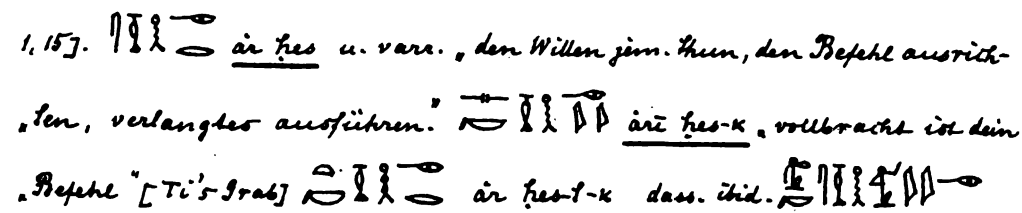 1,15]. ȧr ḥes u. varr. „den Willen jem. thun, den Befehl ausrich-
„ten, verlangtes ausführen.“ ȧrī ḥes-k „vollbracht ist dein
„Befehl“ [Ti's Grab] ȧr ḥes-t-k dass. ibid.